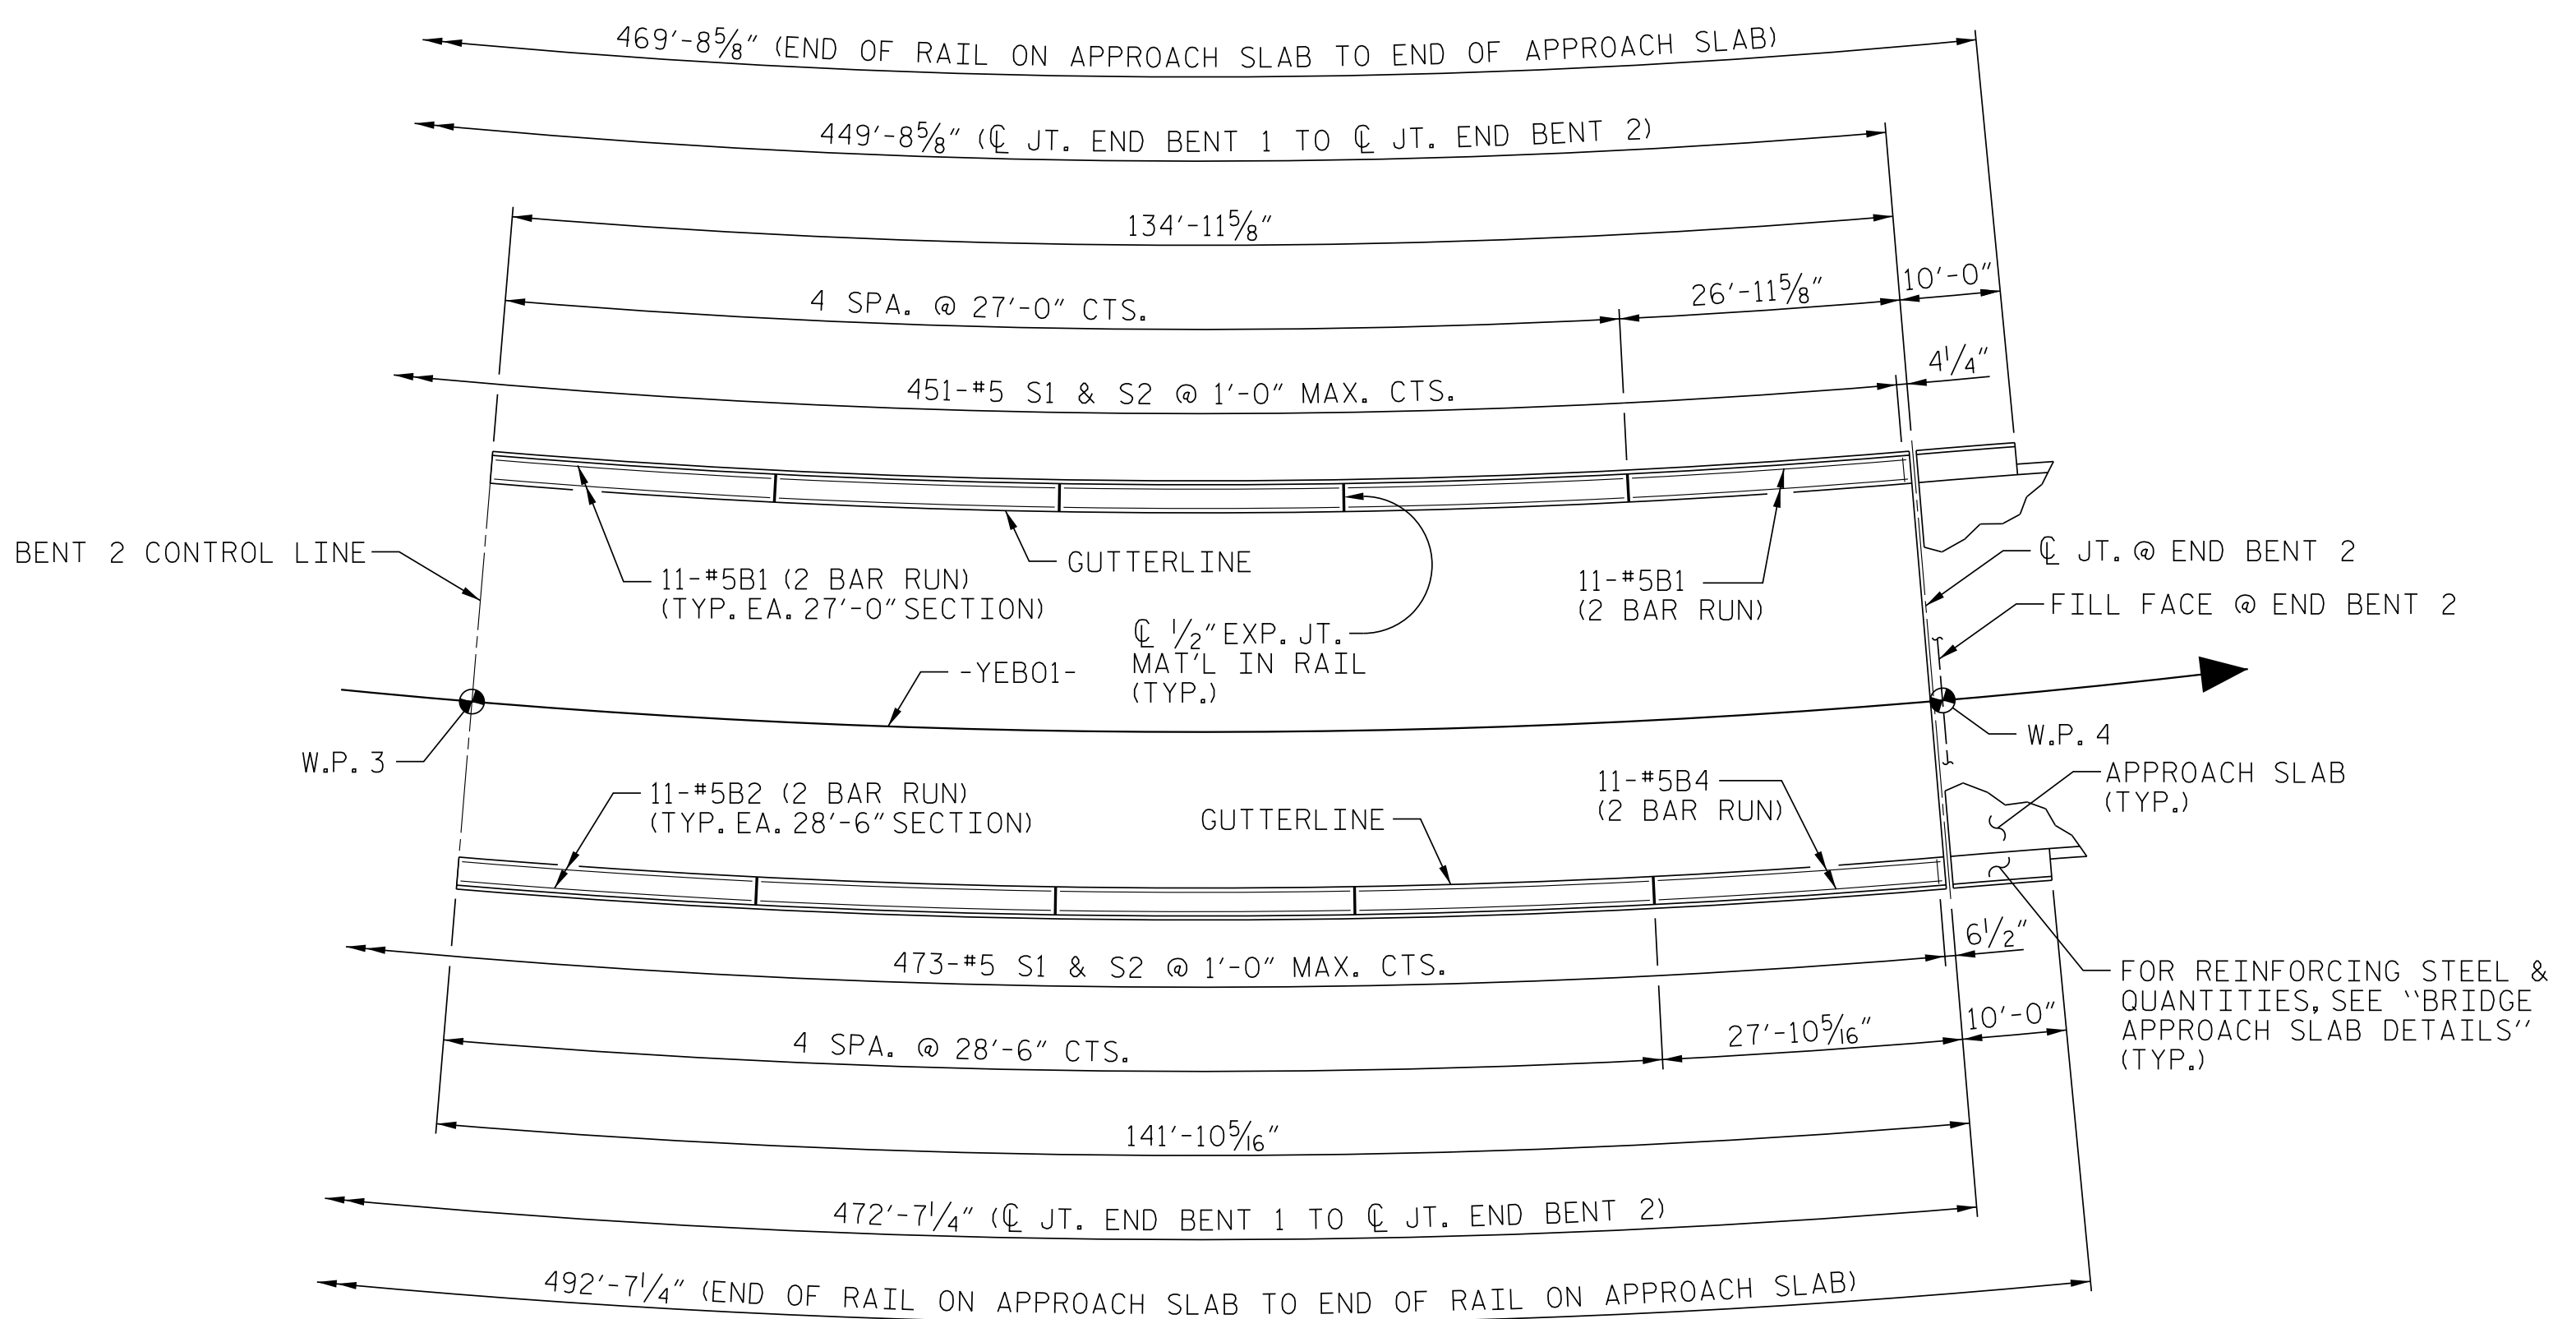 469'-8⅝" (END OF RAIL ON APPROACH SLAB TO END OF APPROACH SLAB)
449'-8⅝" (℄ JT. END BENT 1 TO ℄ JT. END BENT 2)
134'-11⅝"
4 SPA. @ 27'-0" CTS.
26'-11⅝"
10'-0"
451-#5 S1 & S2 @ 1'-0" MAX. CTS.
4¼"
BENT 2 CONTROL LINE
11-#5B1 (2 BAR RUN)
(TYP. EA. 27'-0" SECTION)
GUTTERLINE
℄ ½" EXP. JT.
MAT'L IN RAIL
(TYP.)
11-#5B1
(2 BAR RUN)
℄ JT. @ END BENT 2
FILL FACE @ END BENT 2
-YEB01-
W.P. 3
W.P. 4
APPROACH SLAB
(TYP.)
11-#5B2 (2 BAR RUN)
(TYP. EA. 28'-6" SECTION)
GUTTERLINE
11-#5B4
(2 BAR RUN)
473-#5 S1 & S2 @ 1'-0" MAX. CTS.
6½"
FOR REINFORCING STEEL &
QUANTITIES, SEE ‵‵BRIDGE
APPROACH SLAB DETAILS′′
(TYP.)
4 SPA. @ 28'-6" CTS.
27'-10 5/16"
10'-0"
141'-10 5/16"
472'-7¼" (℄ JT. END BENT 1 TO ℄ JT. END BENT 2)
492'-7¼" (END OF RAIL ON APPROACH SLAB TO END OF RAIL ON APPROACH SLAB)